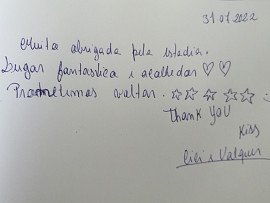 31.01.2022
Muito obrigada pela estadia.
Lugar fantastico e acolhedor ♡♡
Prometemos voltar. ☆☆☆☆☆
Thank you
Kiss